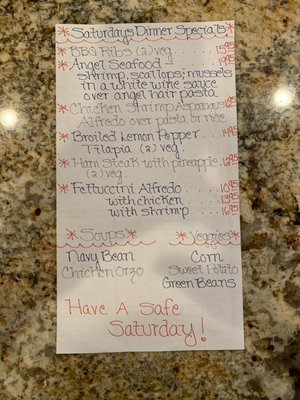 * Saturdays Dinner Specials! *
* BBQ Ribs (2) veg. .... 15.95
* Angel Seafood ...... 19.95
shrimp, scallops, mussels
in a white wine sauce
over angel hair pasta
* Chicken Shrimp Asparagus
Alfredo over pasta or rice
* Broiled Lemon Pepper .... 14.95
Tilapia (2) veg.
* Ham Steak with pineapple. 12.95
(2) veg.
* Fettuccini Alfredo ...... 10.95
with chicken ..... 13.95
with shrimp ..... 16.95
* Soups * * Veggies *
Navy Bean Corn
Chicken Orzo Sweet Potato
Green Beans
Have A Safe
Saturday!